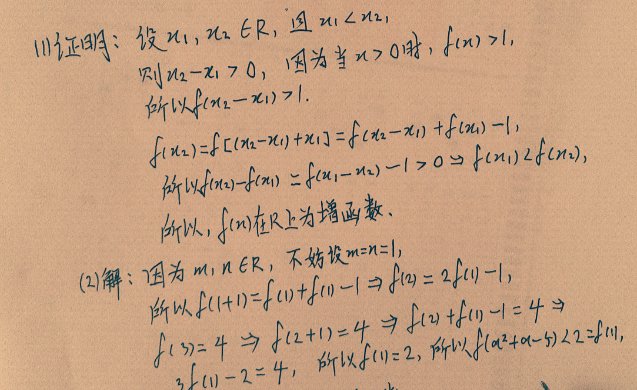 (1)证明：设x₁, x₂∈R, 且x₁<x₂,
则x₂-x₁>0, 因为当x>0时, f(x)>1,
所以f(x₂-x₁)>1.
f(x₂)=f[(x₂-x₁)+x₁]=f(x₂-x₁)+f(x₁)-1,
所以f(x₂)-f(x₁)=f(x₁-x₂)-1>0⇒f(x₁)<f(x₂),
所以, f(x)在R上为增函数.
(2)解：因为m,n∈R, 不妨设m=n=1,
所以f(1+1)=f(1)+f(1)-1⇒f(2)=2f(1)-1,
f(3)=4⇒f(2+1)=4⇒f(2)+f(1)-1=4⇒
3f(1)-2=4, 所以f(1)=2, 所以f(a²+a-5)<2=f(1),